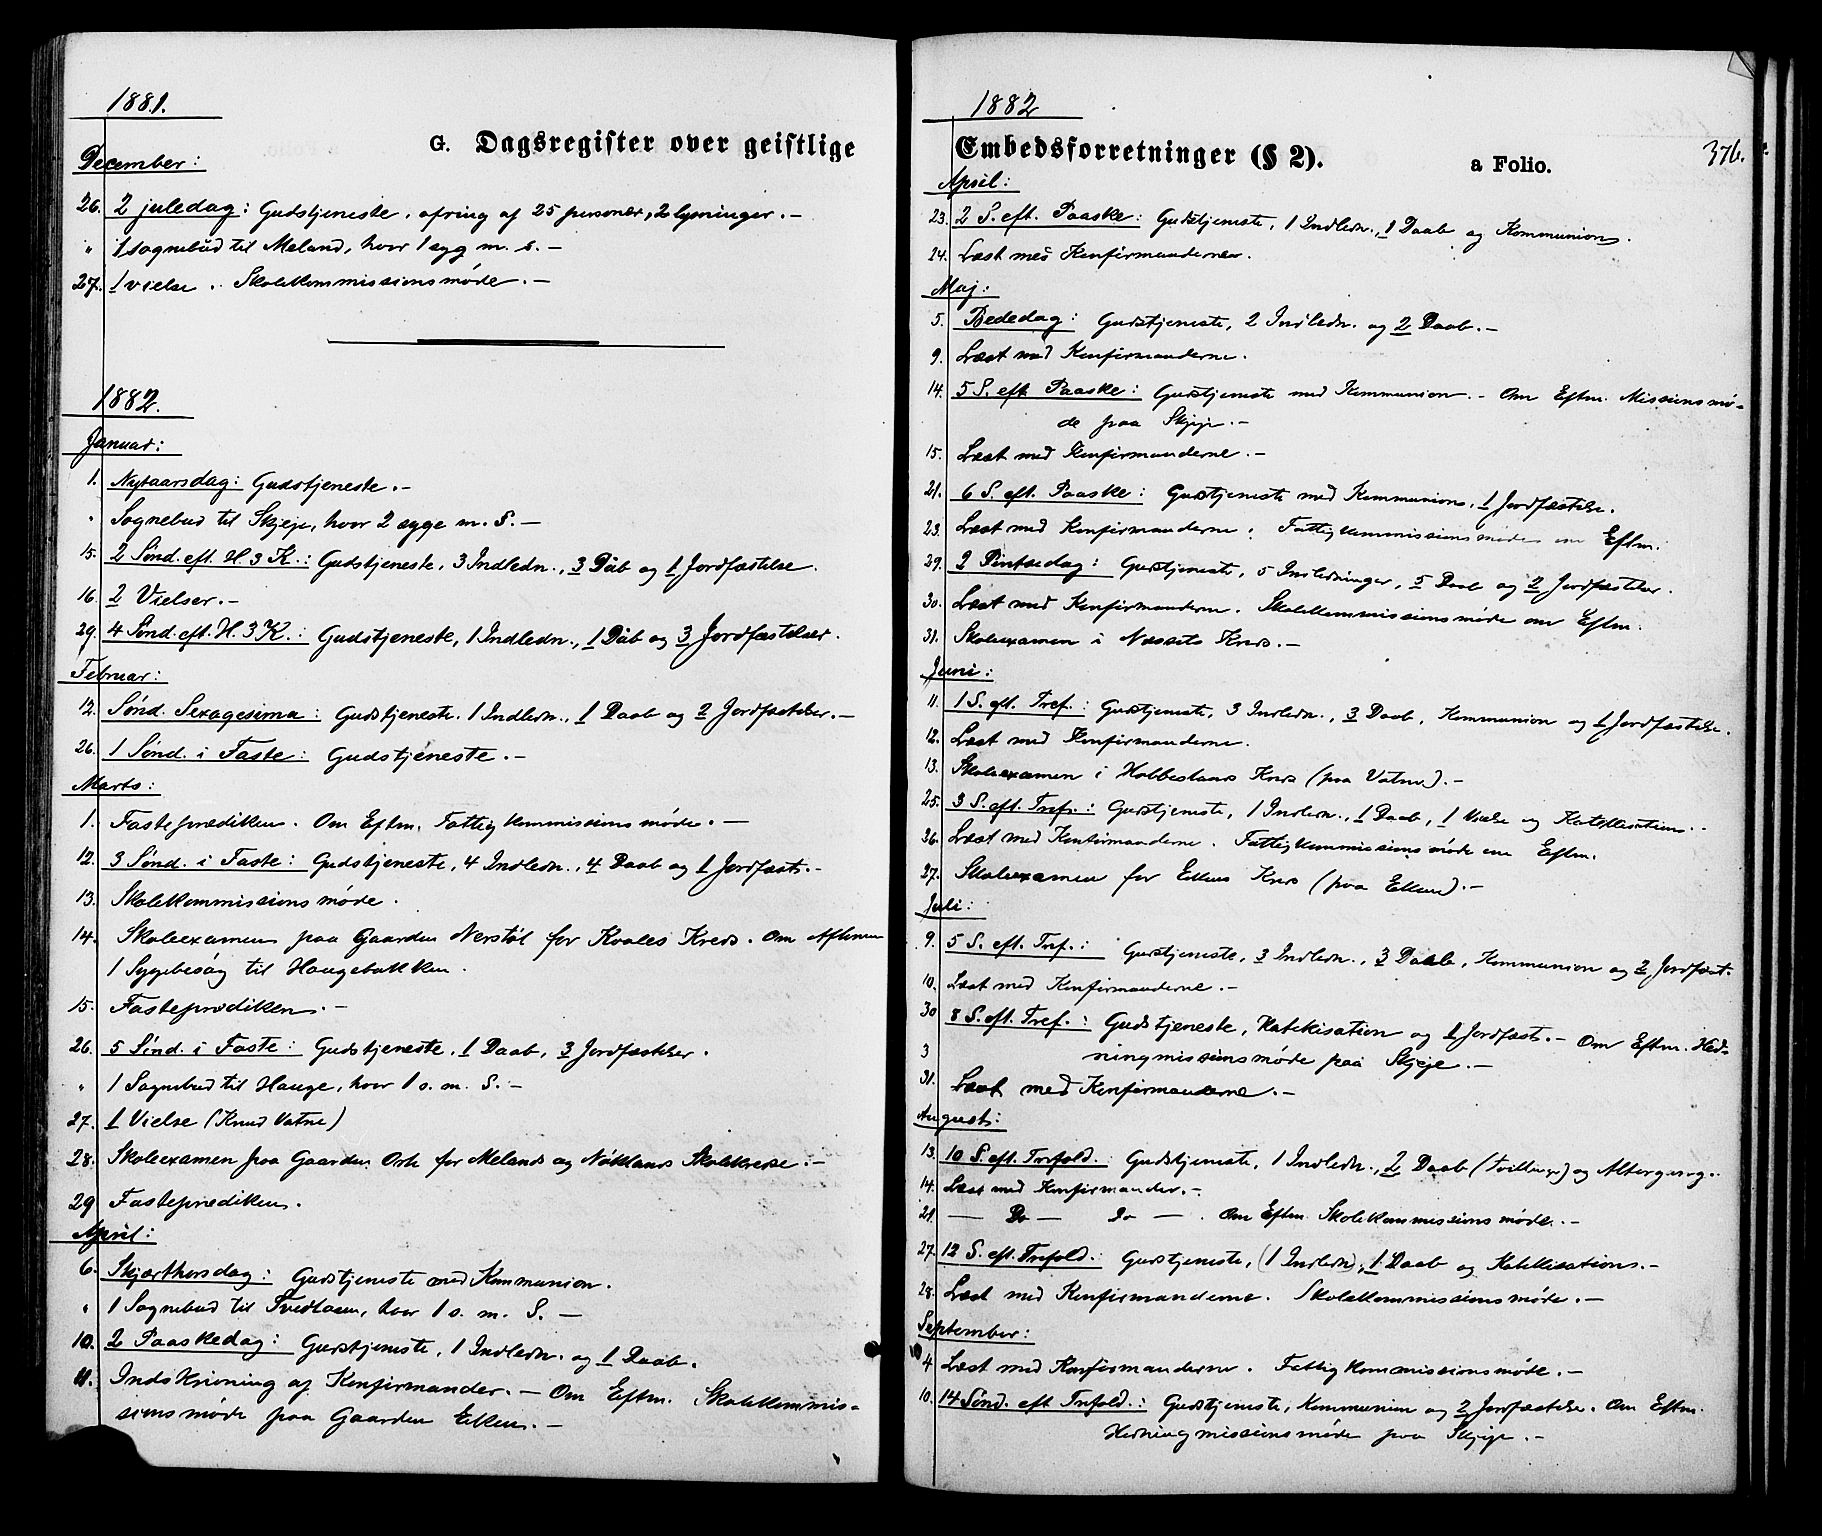 1881.
G. Dagsregister over geistlige
December:
26. 2 juledag: Gudstjeneste, ofring af 25 personer, 2 lysninger. —
" 1 sognebud til Meland, hvor 1 syg m. s. —
27. 1 vielse. Skolekommissionsmøde. —
1882.
Januar:
1. Nytaarsdag: Gudstjeneste. —
" Sognebud til Skjeje, hvor 2 syge m. S. —
15. 2 Sønd. eft. H. 3 K.: Gudstjeneste, 3 Indledn., 3 Dåb og 1 Jordfæstelse.
16. 2 Vielser. —
29. 4 Sønd. eft. H. 3 K.: Gudstjeneste, 1 Indledn., 1 Dåb og 3 Jordfæstelser.
Februar:
12. Sønd. Sexagesima: Gudstjeneste. 1 Indledn., 1 Daab og 2 Jordfæstelser. —
26. 1 Sønd. i Faste: Gudstjeneste. —
Marts:
1. Fasteprædiken. Om Eftm. Fattigkommissionsmøde. —
12. 3 Sønd. i Faste: Gudstjeneste, 4 Indledn., 4 Daab og 1 Jordfæst. —
13. Skolekommissionsmøde.
14. Skoleexamen paa Gaarden Nerstøl for Kvales Kreds. Om Aftenen
1 Sygebesøg til Haugebakken.
15. Fasteprædiken. —
26. 5 Sønd. i Faste: Gudstjeneste, 1 Daab, 3 Jordfæstelser.
" 1 Sognebud til Hauge, hvor 1 s. m. S. —
27. 1 Vielse (Knud Vatne)
28. Skoleexamen paa Gaarden Ork for Melands og Nøklands Skolekredse. —
29 Fasteprædiken.
April:
6. Skjærthorsdag: Gudstjeneste med Kommunion.
" 1 Sognebud til Tvedtosen, hvor 1 s. m. S. —
10. 2 Paaskedag: Gudstjeneste, 1 Indledn. og 1 Daab.
11. Indskrivning af Konfirmander. — Om Eftm. Skolekommis-
sionsmøde paa Gaarden Eiken. —
1882
Embedsforretninger (§ 2).
a Folio.
376.
April:
23. 2 S. eft. Paaske: Gudstjeneste, 1 Indledn., 1 Daab og Kommunion.
24. Læst med Konfirmanderne.
Maj:
5. Bededag: Gudstjeneste, 2 Indledn. og 2 Daab. —
9. Læst med Konfirmanderne.
14. 5 S. eft. Paaske: Gudstjeneste med Kommunion. — Om Eftm. Missionsmø-
de paa Skjeje. —
15. Læst med Konfirmanderne. —
21. 6 S. eft. Paaske: Gudstjeneste med Kommunion, 1 Jordfæstelse.
23. Læst med Konfirmanderne. Fattigkommissionsmøde om Eftm.
29. 2 Pintsedag: Gudstjeneste, 5 Indledninger, 5 Daab og 2 Jordfæstelser.
30. Læst med Konfirmanderne. Skolekommissionsmøde om Eftm.
31. Skoleexamen i Næssets Kreds. —
Juni:
11. 1 S. eft. Tref.: Gudstjeneste, 3 Indledn., 3 Daab, Kommunion og 1 Jordfæstelse.
12. Læst med Konfirmanderne.
13. Skoleexamen i Hobbeslands Kreds (paa Vatne). —
25. 3 S. eft. Tref.: Gudstjeneste, 1 Indledn., 1 Daab, 1 Vielse og Katekisation.
26. Læst med Konfirmanderne. Fattigkommissionsmøde om Eftm.
27. Skoleexamen for Eikens Kreds (paa Eiken). —
Juli:
9. 5 S. eft. Tref.: Gudstjeneste, 3 Indledn., 3 Daab, Kommunion og 2 Jordfæst.
10. Læst med Konfirmanderne. —
30 8 S. eft. Tref.: Gudstjeneste, Katekisation og 1 Jordfæst. — Om Eftm. Hed-
3 ningmissionsmøde paa Skjeje. —
31. Læst med Konfirmanderne. —
August:
13. 10 S. eft. Trefold.: Gudstjeneste, 1 Indledn., 2 Daab (Tvillinger) og Altergang. —
14. Læst med Konfirmander. —
21. — Do — Do — . Om Eftm. Skolekommissionsmøde. —
27. 12 S. eft. Trefold.: Gudstjeneste, (1 Indledn), 1 Daab og Katekisation. —
28. Læst med Konfirmanderne. Skolekommissionsmøde. —
September:
4 Læst med Konfirmanderne. Fattigkommissionsmøde. —
10. 14 Sønd. eft. Trefold.: Gudstjeneste, Kommunion og 2 Jordfæstelse. Om Eftm.
Hedningmissionsmøde paa Skjeje. —